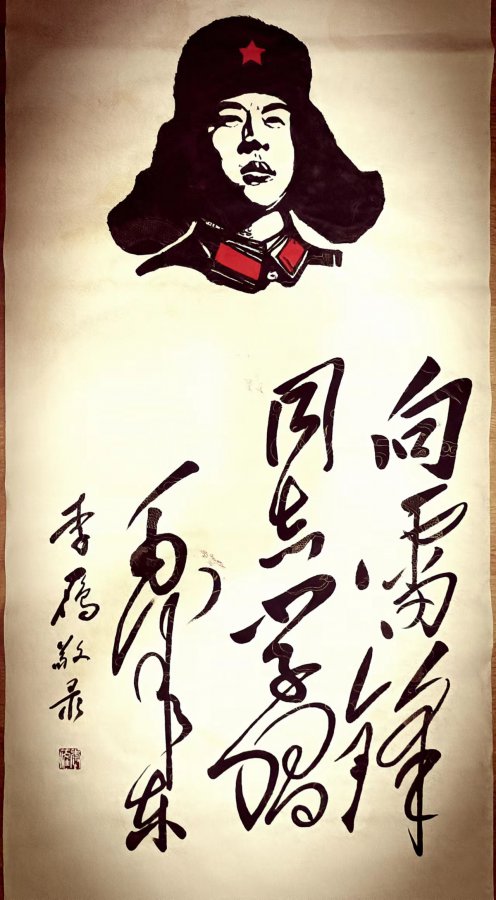 向雷锋
同志学习
毛泽东
李 敬录